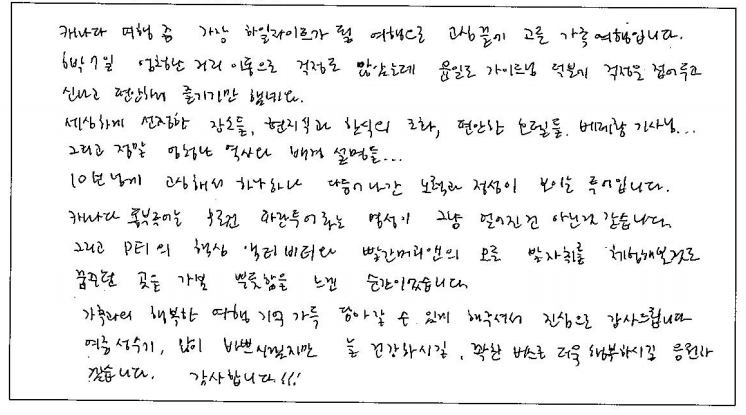 캐나다 여행 중 가장 하일라이트가 될 여행으로 고심끝에 고른 가족여행입니다.
6박7일 엄청난 거리 이동으로 걱정도 많았는데 윤일로 가이드님 덕분에 걱정을 접어두고
신나고 편안하게 즐기기만 했네요.
세심하게 선정한 장소들, 현지식과 한식의 조화, 편안한 호텔들. 베테랑 기사님...
그리고 정말 엄청난 역사와 배경 설명들...
10년넘게 고심해서 하나하나 다듬어나간 노력과 정성이 보이는 투어입니다.
캐나다 동부투어는 오로지 파란투어라는 명성이 그냥 얻어진건 아닌것 같습니다.
그리고 PEI의 핵심 액티비티와 빨간머리앤의 모든 발자취를 체험해보것도
꿈꾸던 곳을 가본 뿌듯함을 느낀 순간이었습니다.
가족과의 행복한 여행 기억 가득 담아갈 수 있게 해주셔서 진심으로 감사드립니다
여름성수기, 많이 바쁘시겠지만 늘 건강하시길, 꽉찬 버스로 더욱 행복하시길 응원하
겠습니다. 감사합니다!!!